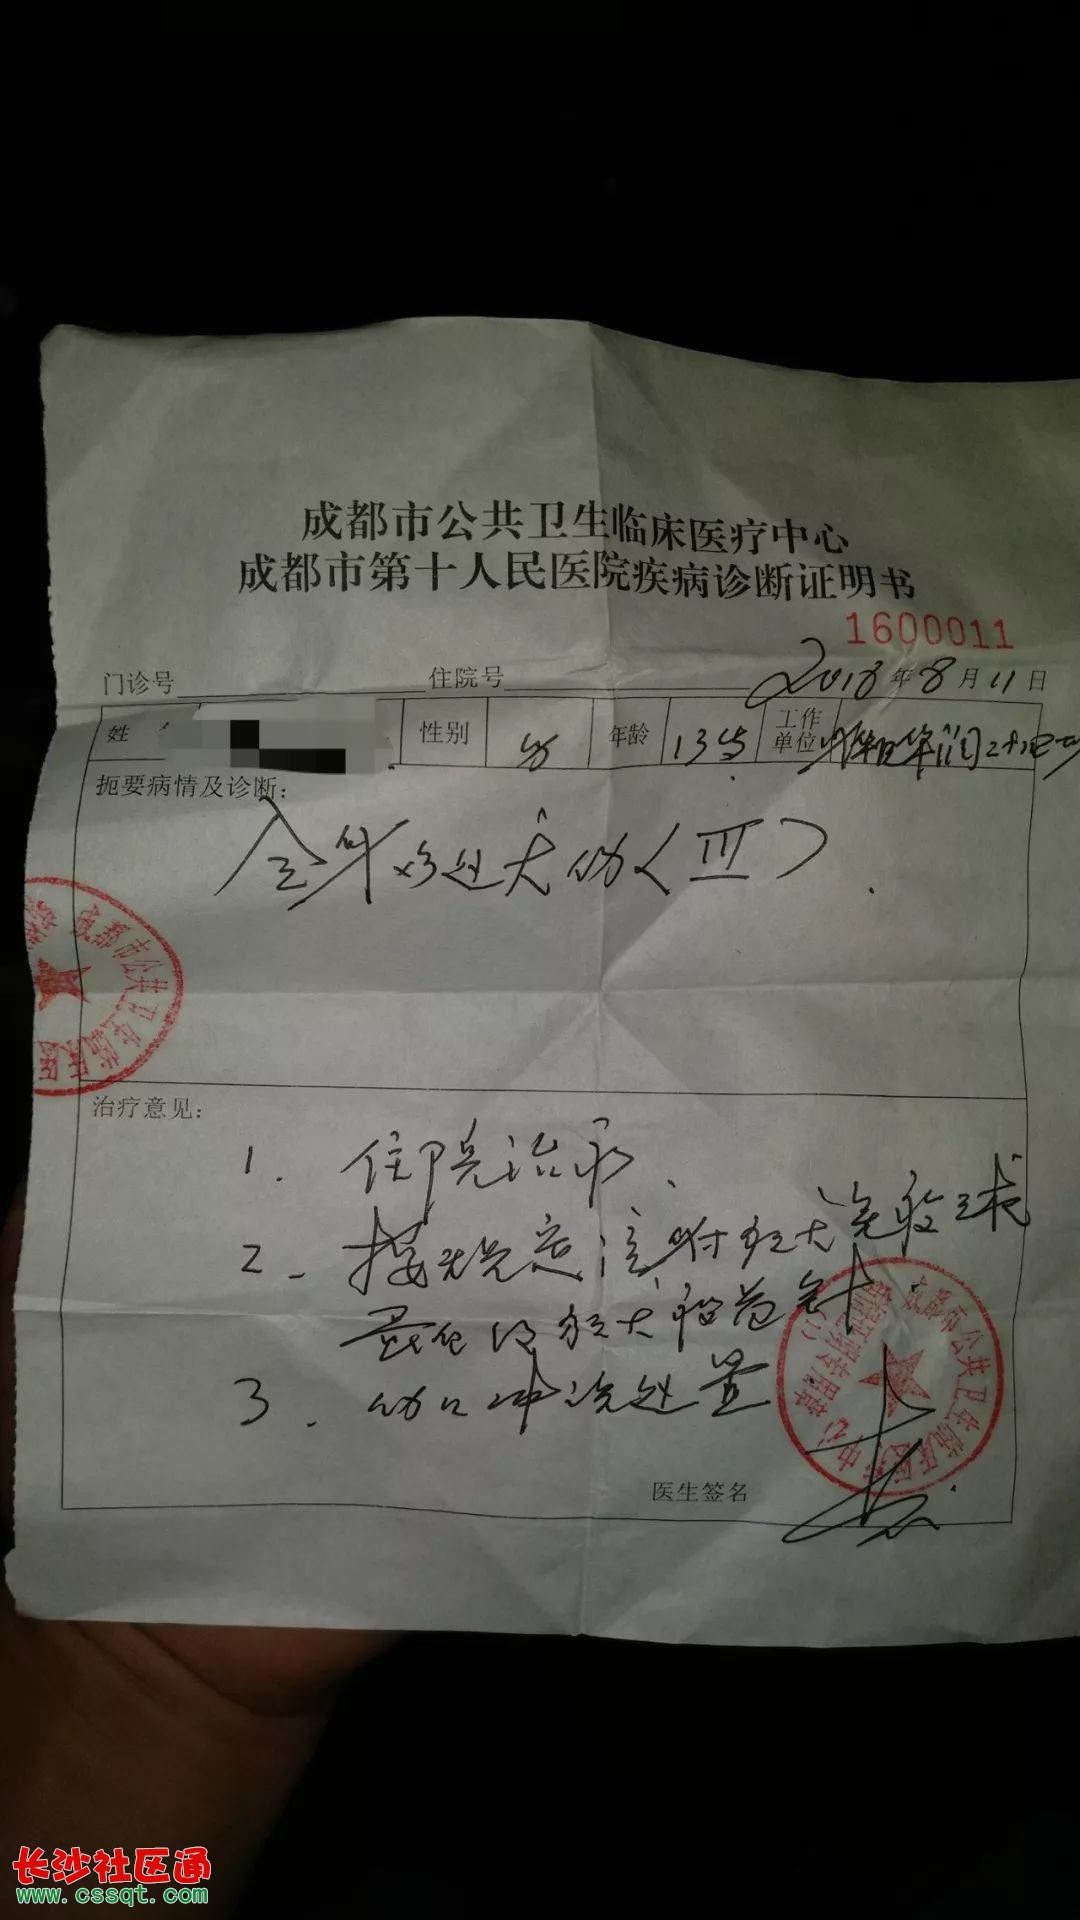 成都市公共卫生临床医疗中心
成都市第十人民医院疾病诊断证明书
1600011
门诊号 住院号 2018年8月11日
姓 性别 年龄 13岁 工作单位
扼要病情及诊断：
全身多处犬伤（Ⅲ）.
成都市公共卫生临床医
治疗意见：
1. 住院治疗.
2. 按规定注射狂犬免疫球
狂犬疫苗针
3. 伤口冲洗处置
成都市公共卫生临床医疗中心
医生签名
长沙社区通
www.cssqt.com